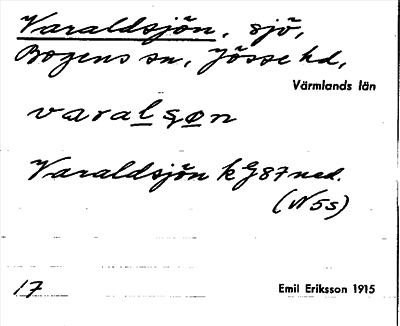 Varaldsjön, sjö,
Bogens sn, Jösse hd,
Värmlands län
varalsøn
Varaldsjön kG87 ned.
(N5s)
17
Emil Eriksson 1915